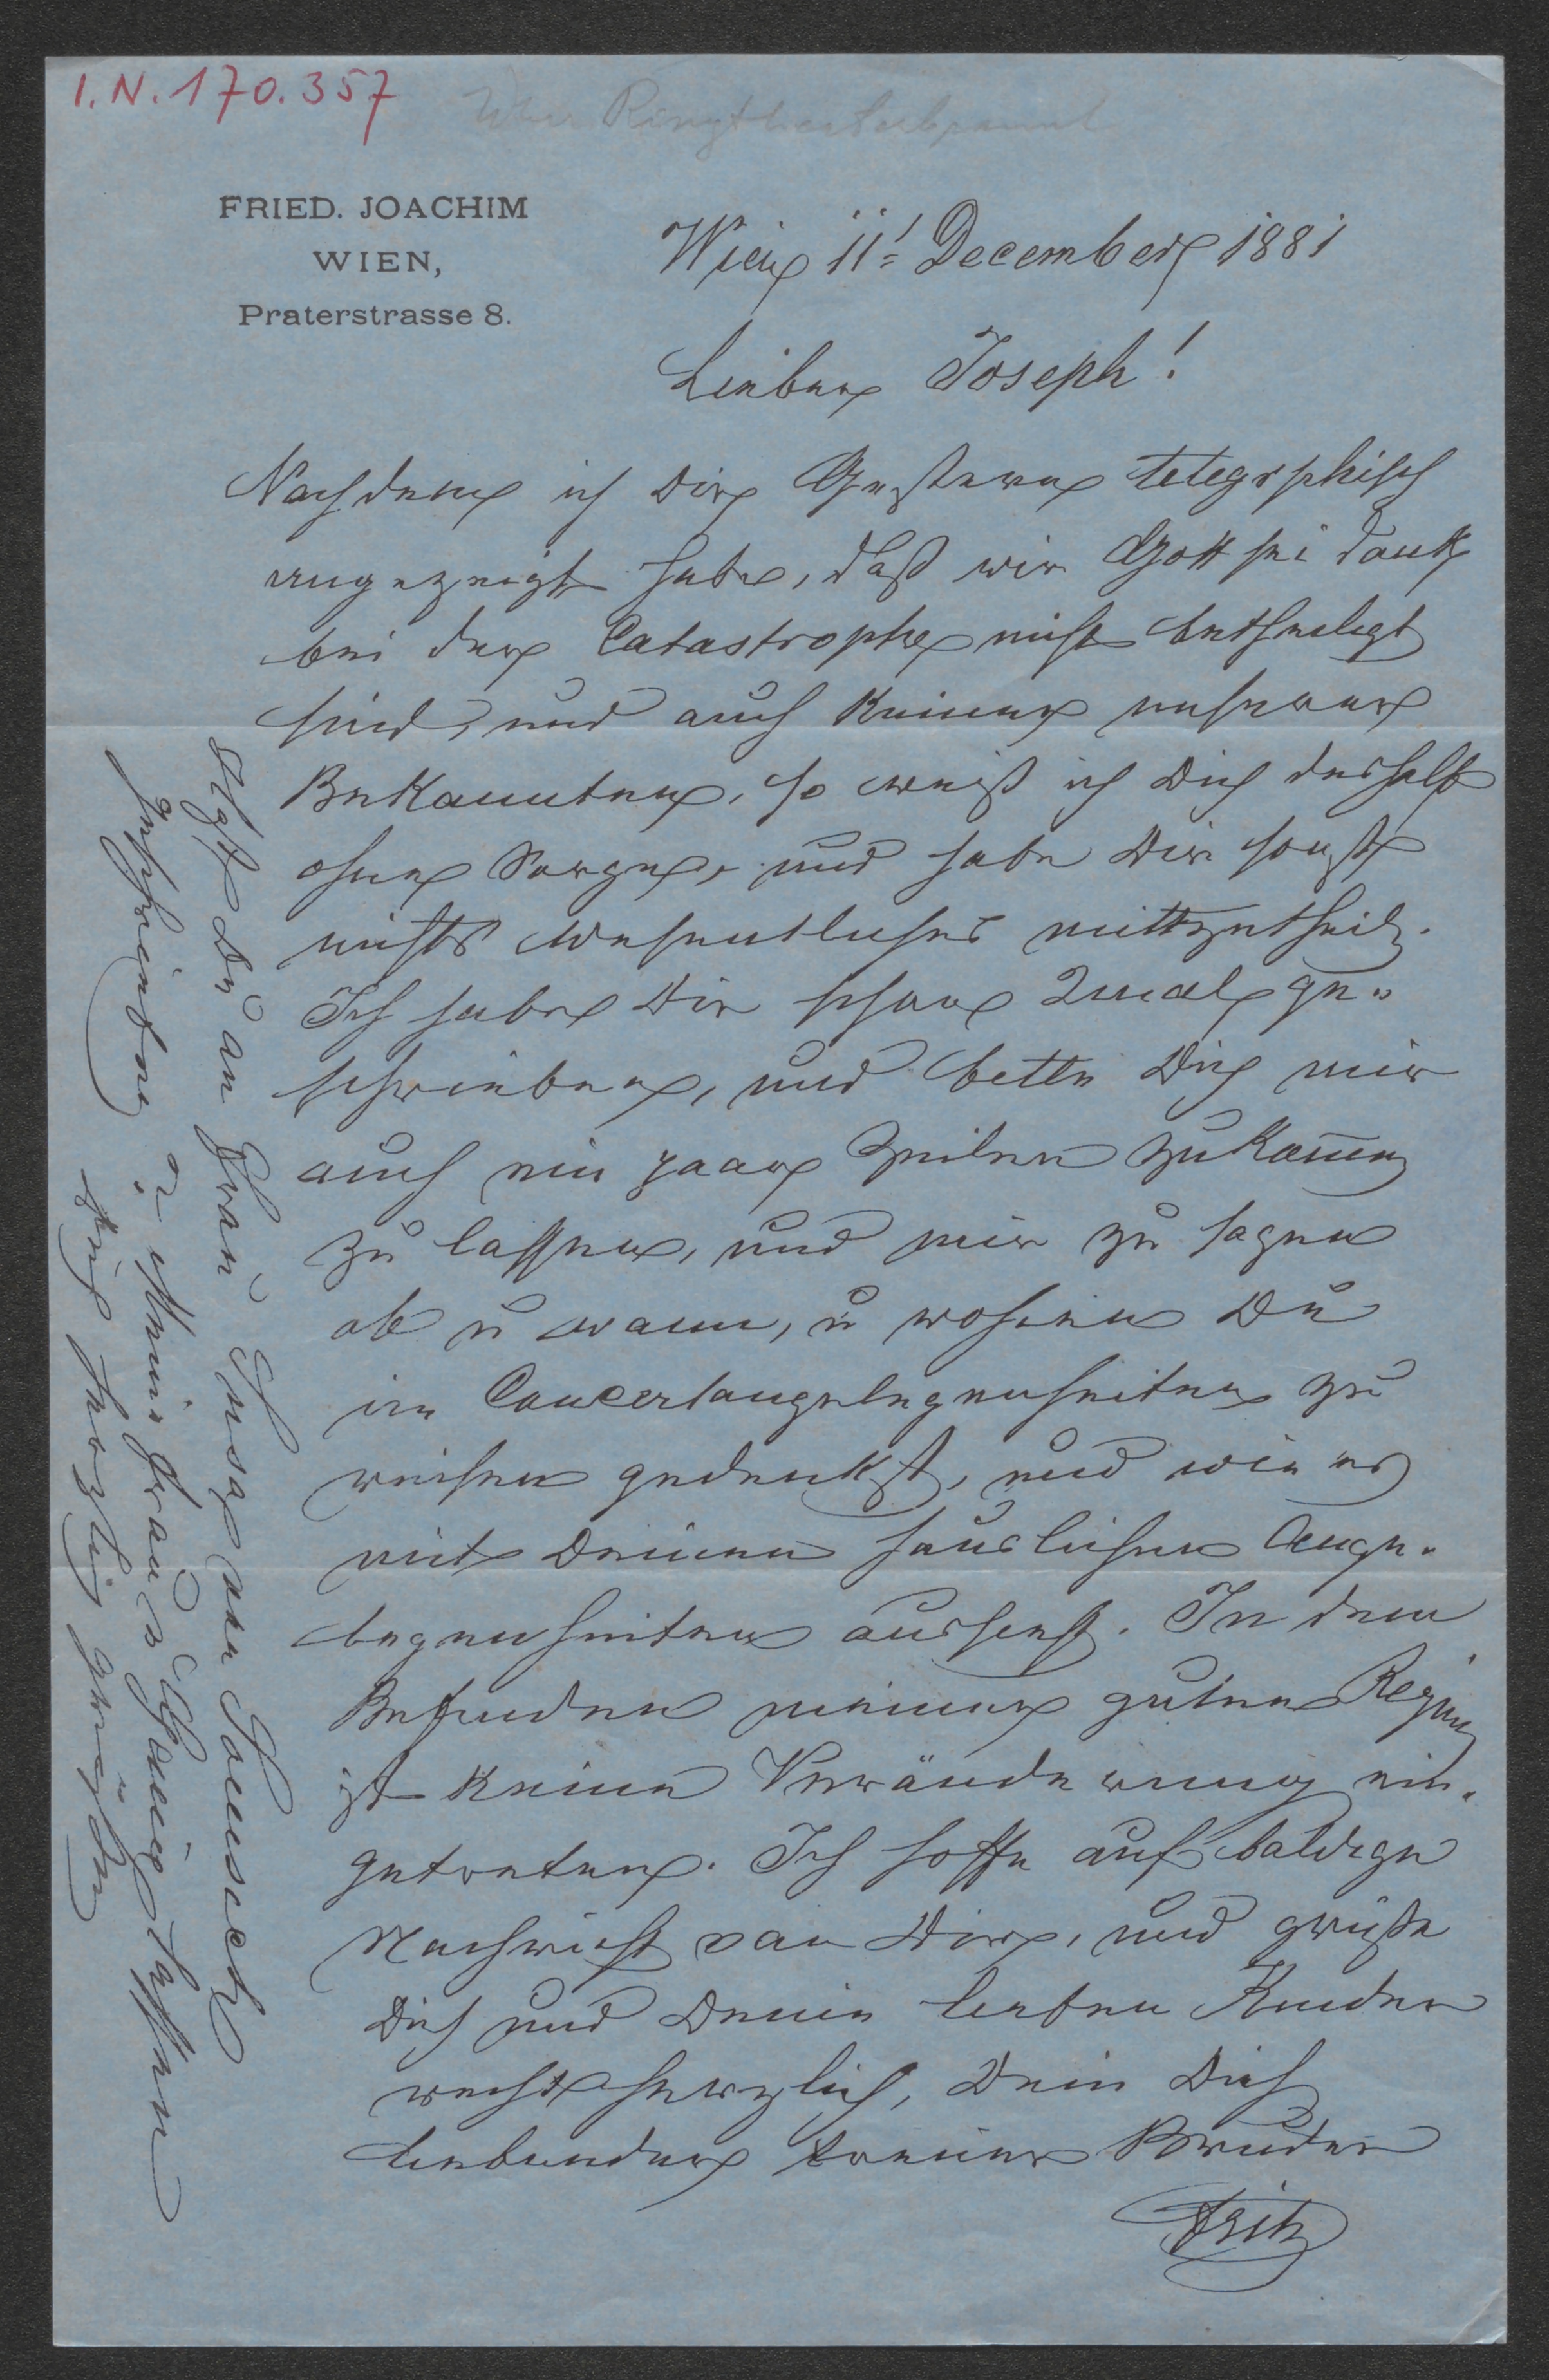 I.N. 170.357
Über Ringtheaterbrand
FRIED. JOACHIM
WIEN,
Praterstrasse 8.
Wien 11' December 1881
Lieber Joseph!
Nachdem ich Dir Gestern telegrphisch
angezeigt habe, daß wir Gott sei dank
bei der Catastrophe nicht betheiligt
sind, und auch Keiner unserer
Bekannten, so weiß ich Dich deshalb
ohne Sorge, und habe Dir sonst
nichts wesentliches mittzutheil.
Ich habe Dir schon 2mal ge-
schrieben, und bette Dich mir
auch ein paar Zeilen zukom̄en
zu lassen, und mir zu sagen
ob u wann, u wohin Du
in Concertangelegenheiten zu
reisen gedenkst, und wie es
mit Deinen häuslichen Ange-
legenheiten aussieht. In dem
Befinden meiner guten Regin
ist keine Verwänderung ein-
getreten. Ich hoffe auf baldige
Nachricht von Dir, und grüße
Dich und Deine lieben Kinder
recht herzlich, Dein Dich
liebender treuer Bruder
Fritz
Du an Frau
geschrieben? Meine Frau u lassen
Dich herzlich grüßen